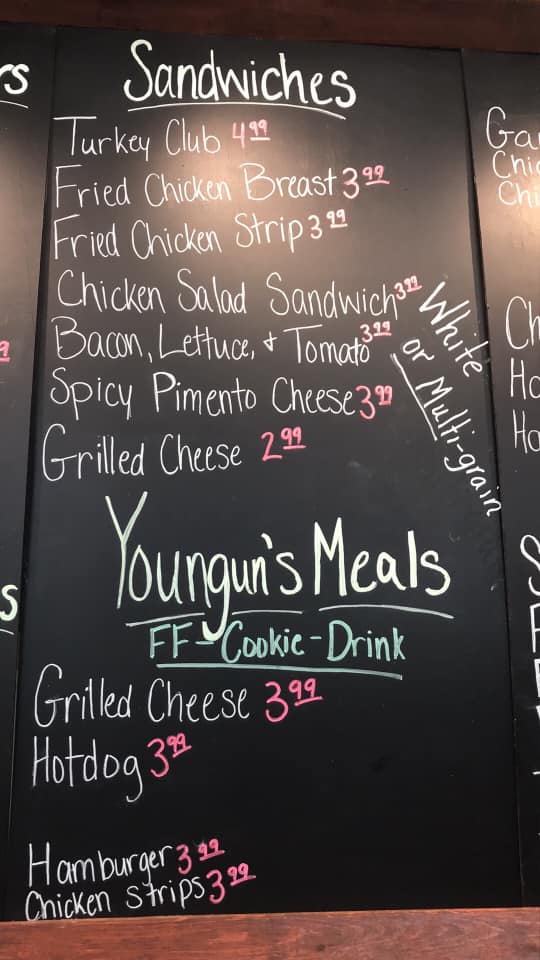 rs
Sandwiches
Turkey Club 4.99
Fried Chicken Breast 3.99
Fried Chicken Strip 3.99
Chicken Salad Sandwich 3.99
Bacon, Lettuce, + Tomato 3.99
Spicy Pimento Cheese 3.99
Grilled Cheese 2.99
White
or Multi-grain
Youngun's Meals
FF-Cookie-Drink
Grilled Cheese 3.99
Hotdog 3.99
Hamburger 3.99
Chicken strips 3.99
s
Ga
Chic
Chi
Ch
Ho
Ho